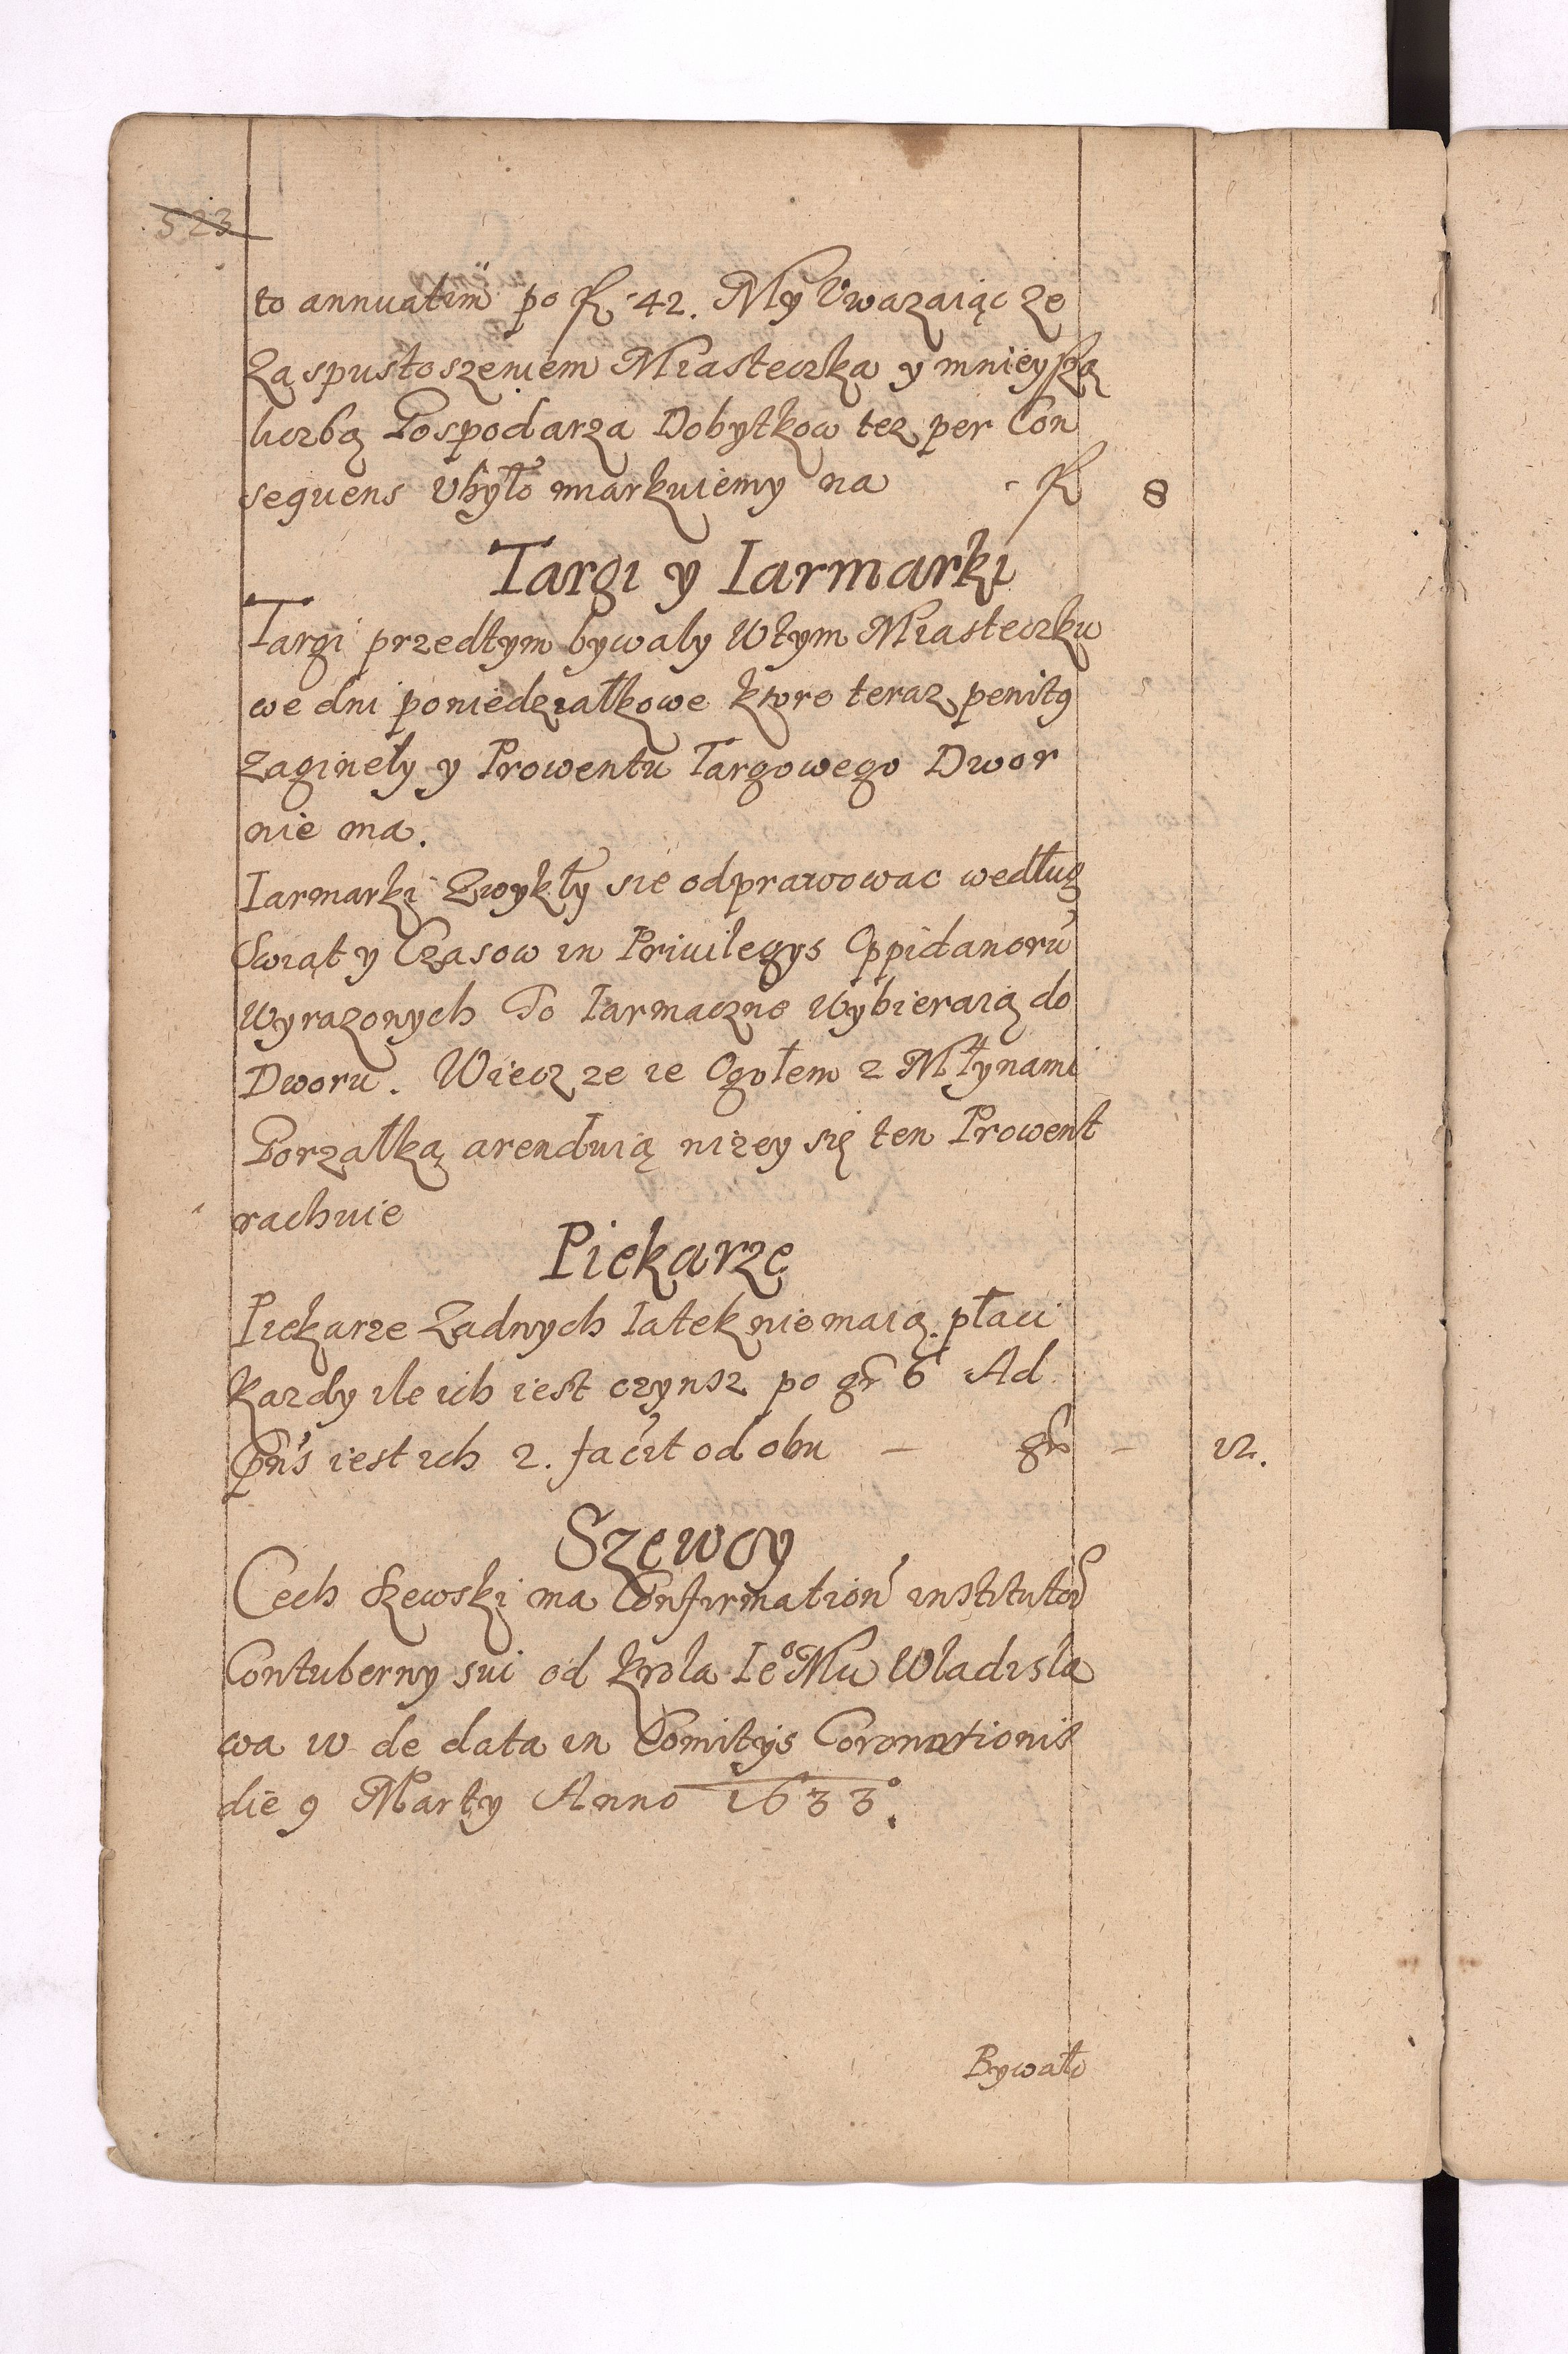 523
to annuatim po fl 42. My Uwazaiąc ze
Za spustoszeniem Miasteczka y mnieyszą
liczbą Gospodarza Dobytkow tez per Con
sequens Ubyło miarkuiemy na - fl 8
Targi y Iarmarki
Targi przedtym bywaly w tym Miasteczku
we dni poniedziałkowe ktore teraz penitus
zagineły y Prowentu Targowego Dwor
nie ma.
Iarmarki Zwykły sie odprawowac według
Swiąt y Czasow in Priuilegys Oppidanorū
wyrazonych To Iarmaczne wybieraią do
Dworu. Wiecz ze ie Ogołem z Młynami
Gorzałką arenduią nizey się ten Prowent
rachuie
Piekarze
Piekarze Zadnych Iatek nie maią. płaci
Kazdy ile ich iest czynsz po gr 6 Ad
pn̄s iest ich 2. facit od obu - gr - 12.
Szewcy
Cech Szewski ma Confirmation institutor
Contuberny sui od Krola Ieº Mci Wladisla
wa IV de data in Comitys Coronationis
die 9 Marty Anno 1633º.
Bywało